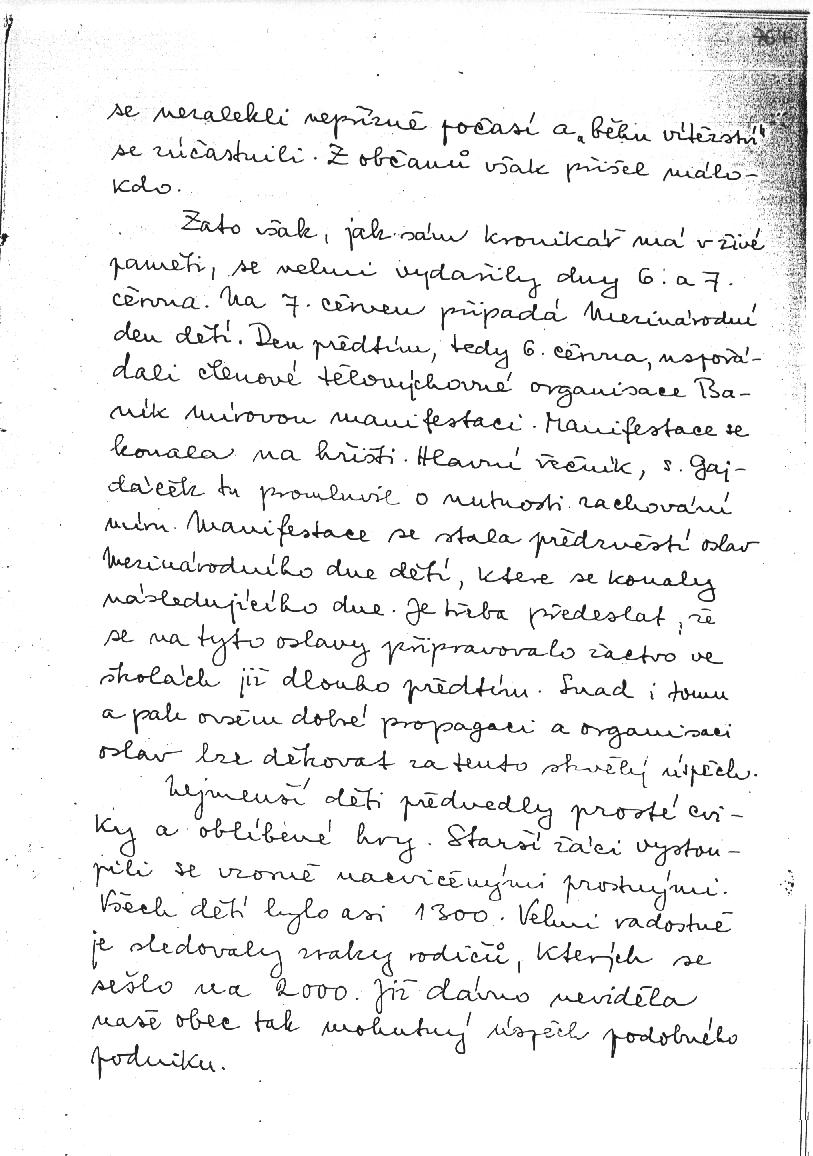 se nezalekli nepřízně počasí a „běhu vítězství"
se zúčastnili. Z občanů však přišel málo-
kdo.
Zato však, jak sám kronikář má v živé
paměti, se velmi vydařily dny 6. a 7.
června. Na 7. červen připadá Mezinárodní
den dětí. Den předtím, tedy 6. června, uspořá-
dali členové tělovýchovné organisace Ba-
ník mírovou manifestaci. Manifestace se
konala na hřišti. Hlavní řečník, s. Gaj-
dáček tu promluvil o nutnosti zachování
míru. Manifestace se stala předzvěstí oslav
Mezinárodního dne dětí, ktere se konaly
následujícího dne. Je třeba předeslat, že
se na tyto oslavy připravovalo žactvo ve
školách již dlouho předtím. Snad i tomu
a pak ovšem dobré propagaci a organisaci
oslav lze děkovat za tento skvělý úspěch.
Nejmenší děti předvedly prosté cvi-
ky a oblíbené hry. Starší žáci vystou-
pili se vzorně nacvičenými prostnými.
Všech dětí bylo asi 1300. Velmi radostně
je sledovaly zraky rodičů, kterých se
sešlo na 2000. Již dávno neviděla
naše obec tak mohutný úspěch podobného
podniku.